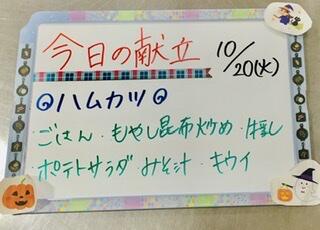 今日の献立 10/20(火)
◎ハムカツ◎
ごはん・もやし昆布炒め・牛乳
ポテトサラダ・みそ汁・キウイ